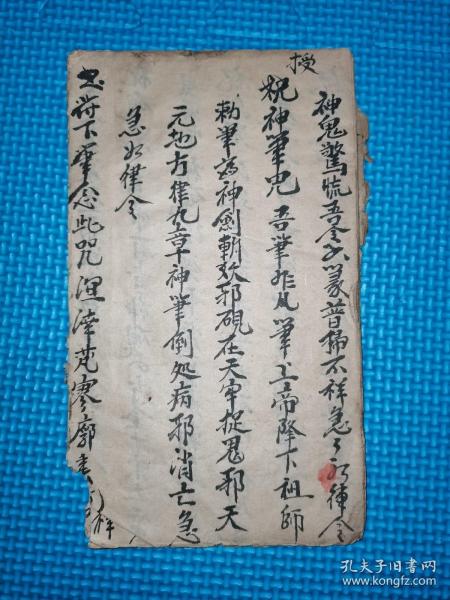 神鬼驚慌吾今大篆普掃不祥急々如律令
祝神筆咒 吾筆非凡筆上帝降下祖師
授
勅筆為神劍斬妖邪硯在天牢捉鬼邪天
元地方律九章神筆倒处病邪消亡急
急如律令
書符下筆念此咒 混沌茫寥廓
孔夫子旧书网
www.kongfz.com